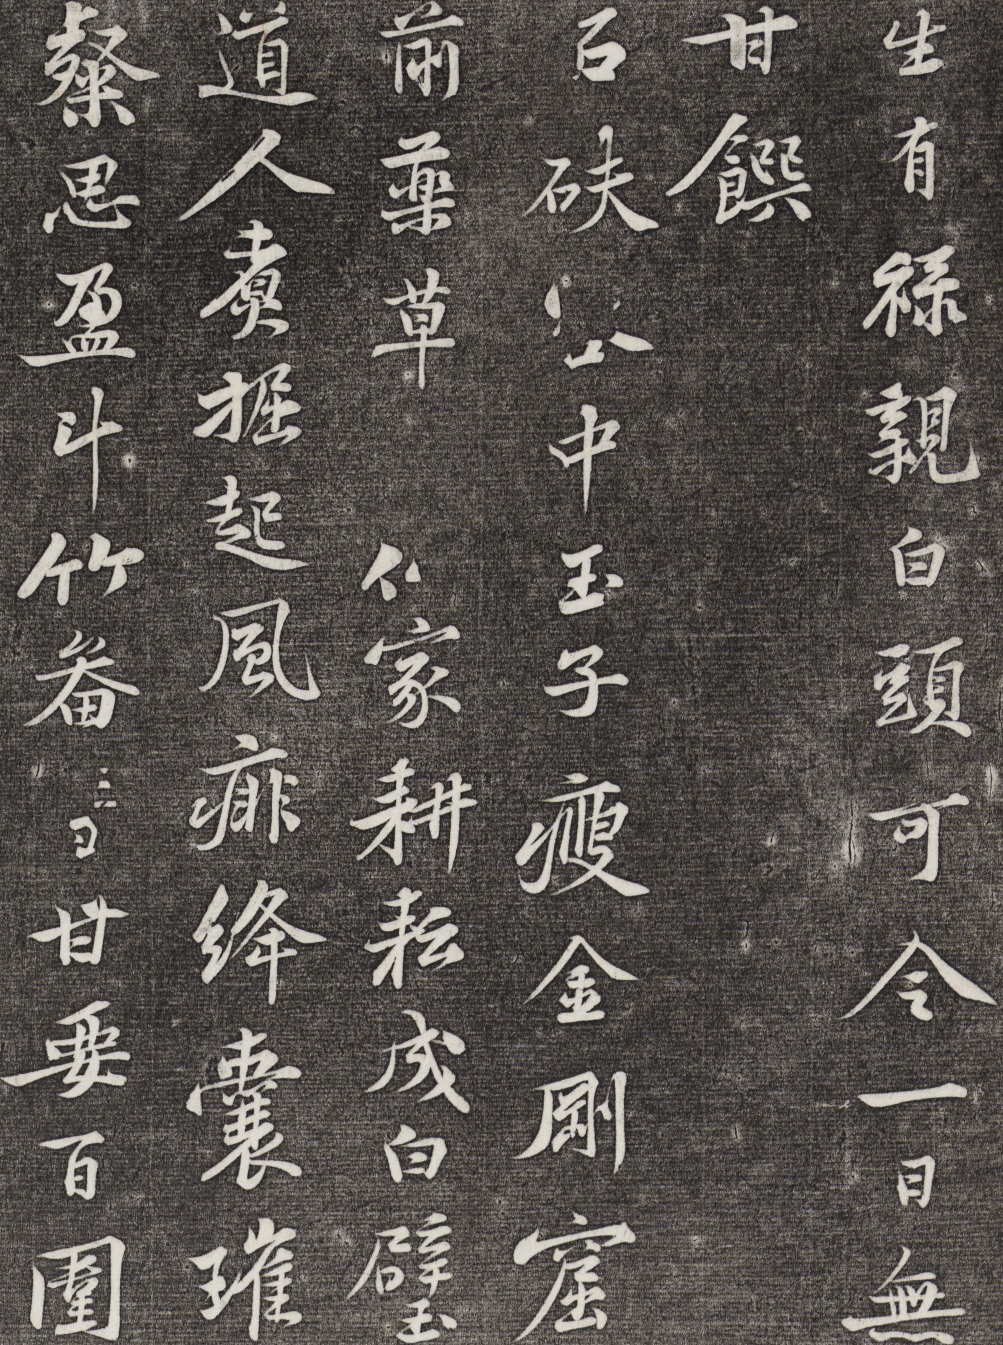 生有祿親白頭可令一日無
甘饌
石砆谷中玉子瘦金剛窟
前藥草家耕耘成白璧
道人煮掘起風痱絳囊璀
粲思盈斗竹畚甘要百圍